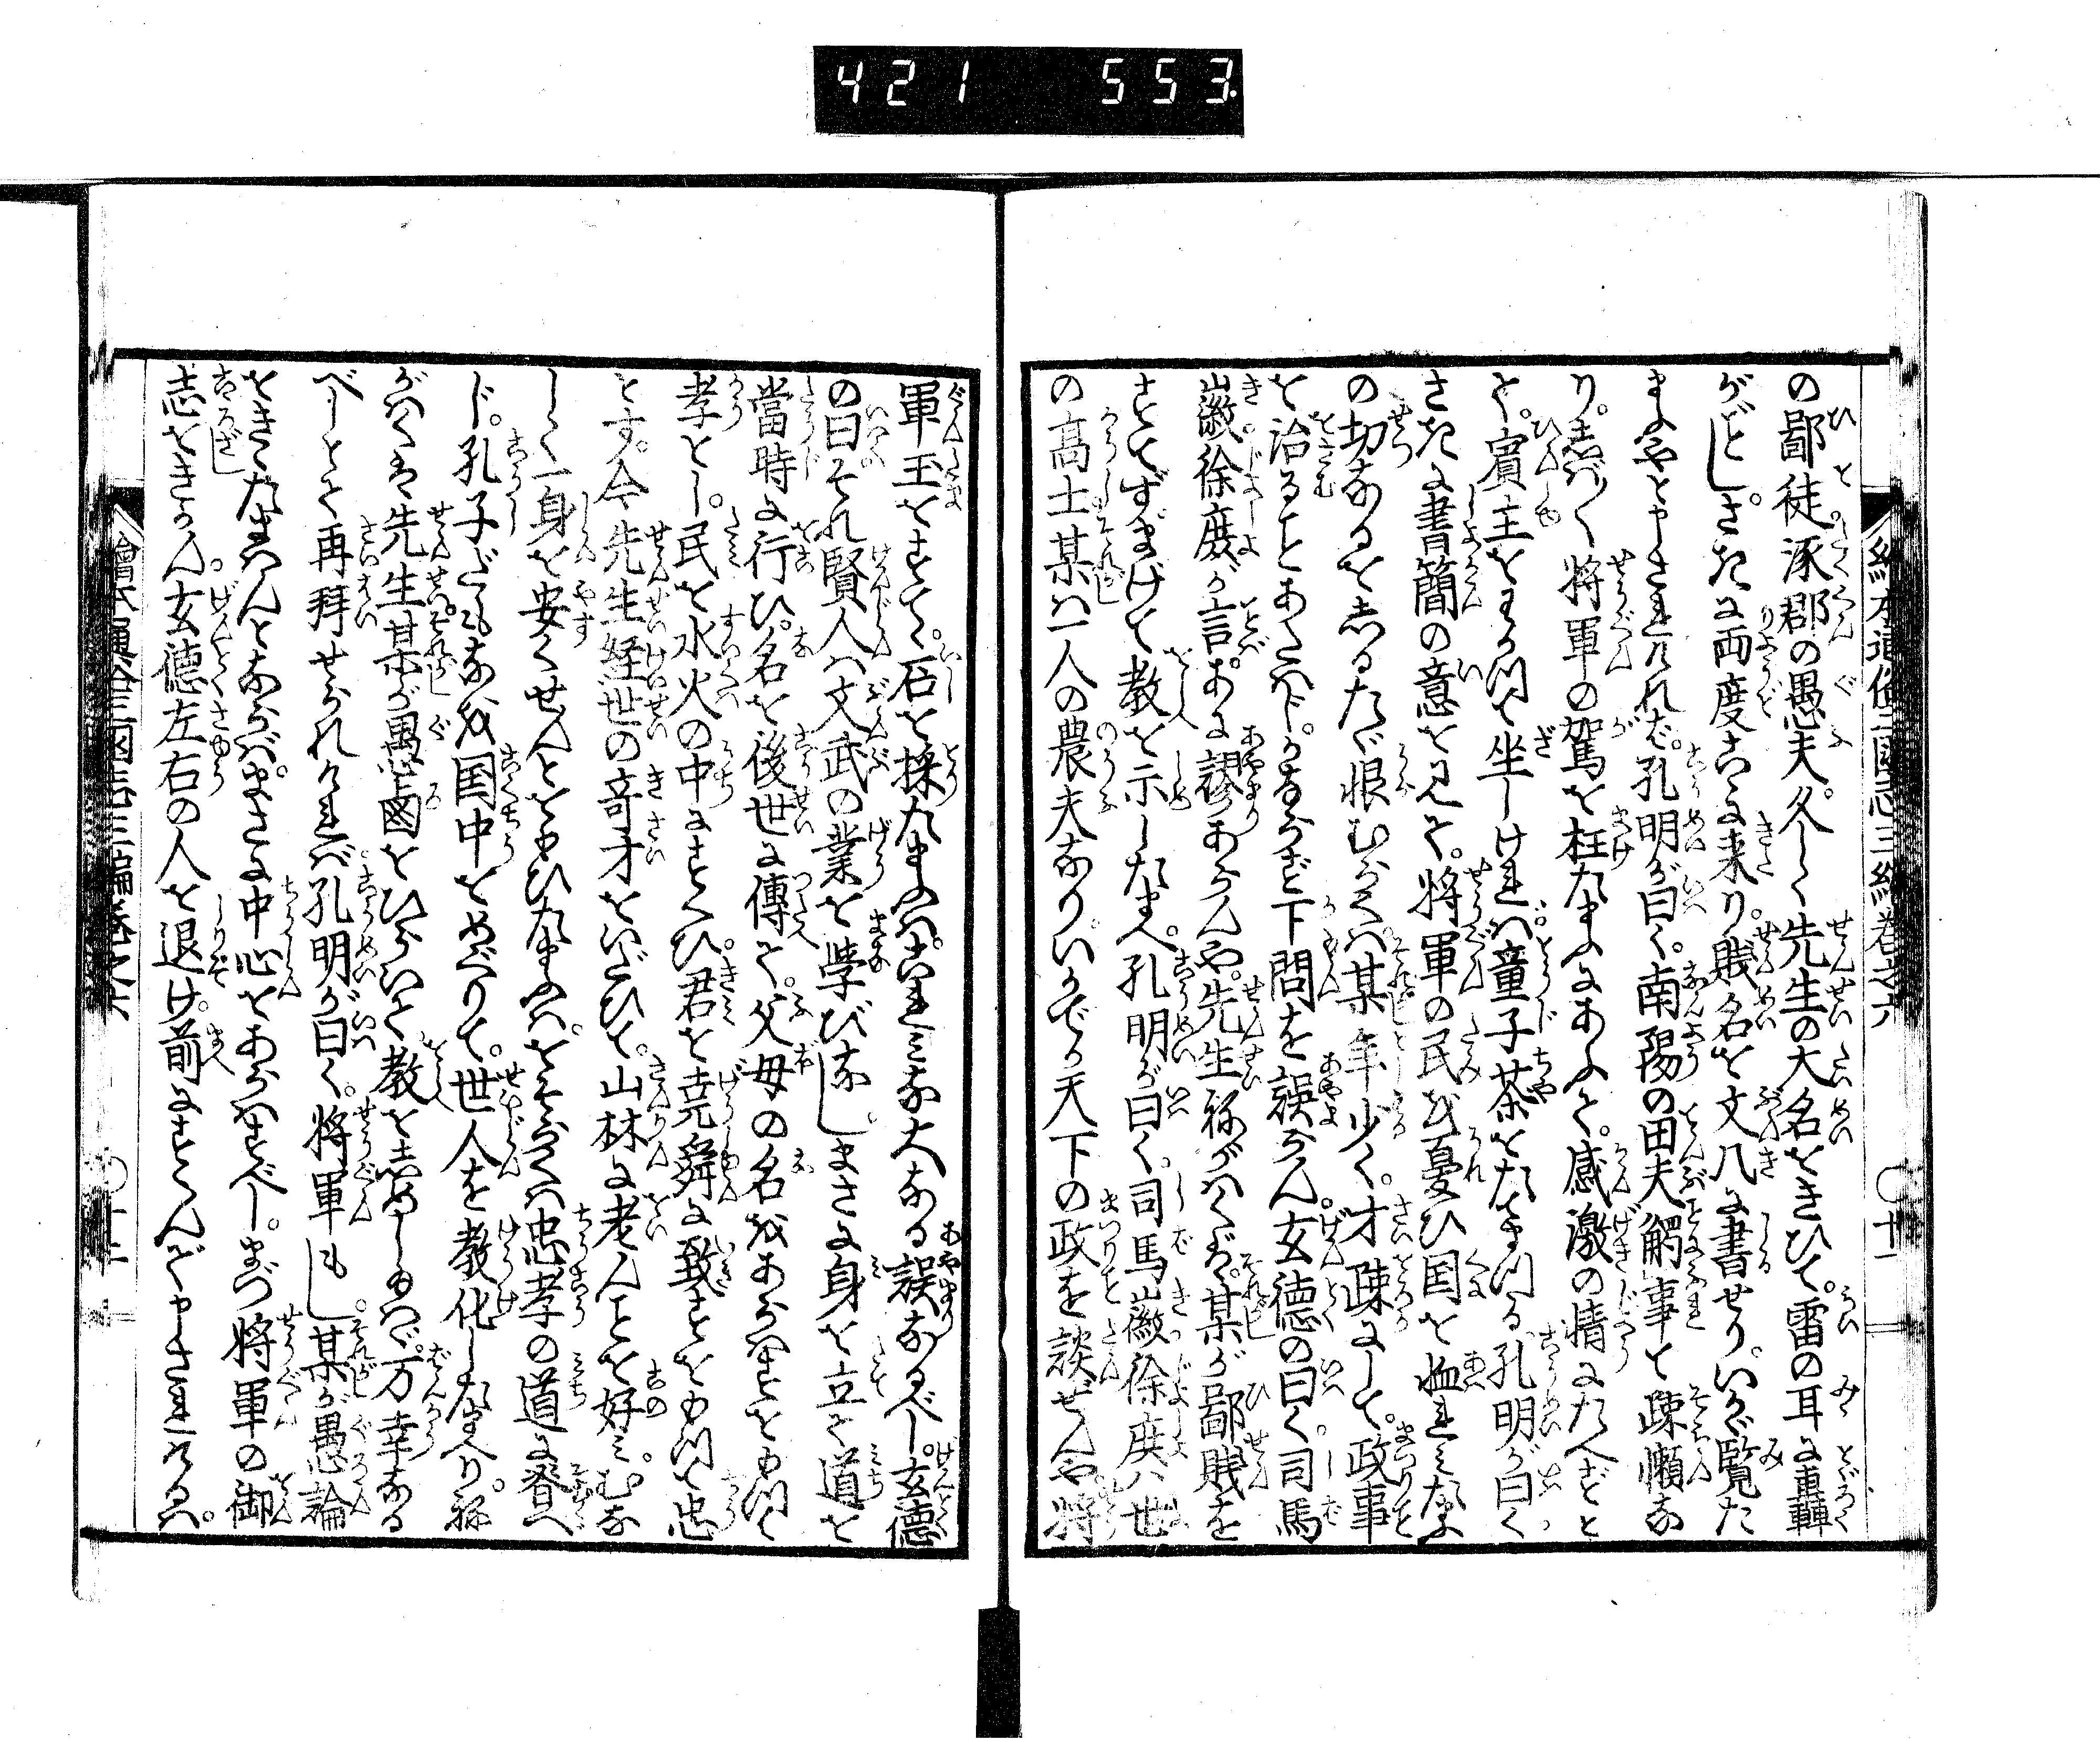 421 553.
絵本通俗三國志三編巻之六 〇十一
の鄙徒涿郡の愚夫久しく先生の大名をきひて。雷の耳に轟
がごとし。さきに両度こゝに来り。賎名を文几に書せり。いかゞ覧た
まふやと申されければ。孔明が曰く。南陽の田夫觸事に疎懶な
り。しば〳〵将軍の駕を枉たまふにあふて。感激の情にたへずと
て。賓主をわかつて坐しければ童子茶をたてまつる孔明が曰く
さきに書簡の意を見て。将軍の民を憂ひ国を恤れみたまふ
の切なるをしるたゞ恨むらくは某年少く。才疎にして。政事
を治ることあたはず。かならず下問を誤らん。玄徳の曰く司馬
徽徐庶が言。あに謬りあらんや。先生ねがはくは。某が鄙賎を
すてずまげて教を示したまへ。孔明が曰く。司馬徽徐庶ハ世
の高士某ハ一人の農夫なり。いかでか天下の政を談ぜんや将
軍玉をすてゝ。石を採たまふハ。これみな大なる誤なるべし。玄徳
の曰それ賢人ハ文武の業を学びなし。まさに身を立て道を
當時に行ひ。名を後世に傳て。父母の名をあらはすをもつて
孝とし。民を水火の中にすくひ。君を堯舜に致すをもつて忠
とす。今先生経世の奇才をいだひて。山林に老んことを好み。むな
しく一身を安くせんとをもひたまふハ。をそらくハ忠孝の道に叅へ
じ。孔子だもなを国中をめぐりて。世人を教化したまへり。ね
がはくは先生某が愚鹵をひらいて教をしめしたまはゞ。万幸なる
べしとて再拜せられければ。孔明が曰く。将軍もし。某が愚論
をきゝたまはんとならば。まさに中心をあらはすべし。まづ将軍の御
志をきかん。玄徳左右の人を退け。前にすゝんで申されけるハ。
繪本通俗三國志三編巻之六 〇十一